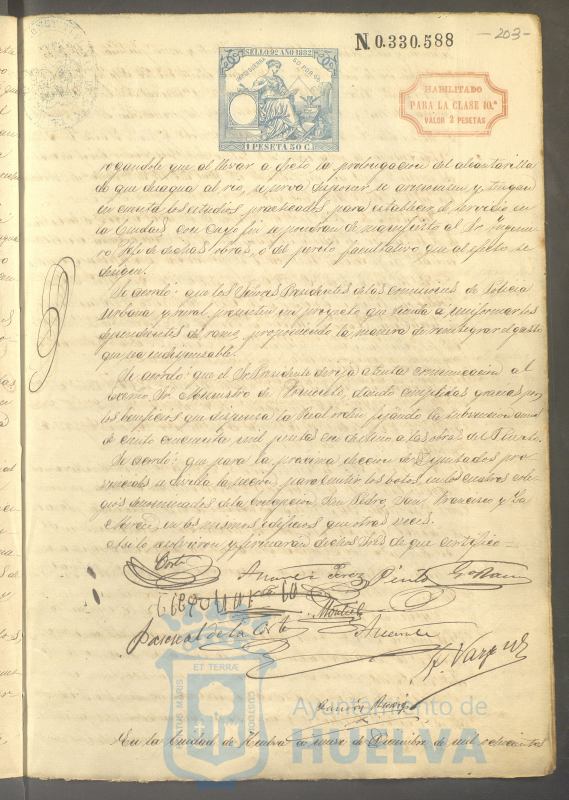 N.0.330.588
-203-
SELLO 9º AÑO 1882
1 PESETA 50 C.
HABILITADO
PARA LA CLASE 10.ª
VALOR 2 PESETAS
rogandole que al llevar a efecto la prolongacion del alcantarilla
do que desagua al rio, se sirva disponer se armonicen y tengan
en cuenta los estudios practicados para establecer el servicio en
la Ciudad, con cuyo fin se pondran de manifiesto al Sr. Ingenie
ro Jefe de dichas obras, o del perito facultativo que al efecto se
designe.
Se acordó: que los Señores Presidentes de las comisiones de policia
urbana y rural presenten un proyecto que tienda a uniformar los
dependientes del ramo, proponiendo la manera de reintegrar el gasto
que sea indispensable.
Se acordó: que el Sr. Presidente dirija atenta comunicacion al
Excmo. Sr. Ministro de Fomento, dando cumplidas gracias por
los beneficios que dispensa la Real orden fijando la subvencion anual
de ciento cincuenta mil pesetas con destino a las obras del Puerto.
Se acordó: que para la proxima eleccion de Diputados pro
vinciales se divida la seccion para emitir los votos, en los cuatro cole
gios denominados de la Concepcion, San Pedro, San Francisco y La
Merced en los mismos edificios que otras veces.
Asi lo resolvieron y firmaran dichos Sres. de que certifico=
Perez Pinto
Montiel
Pascual de la Corte
F. Vazquez
ET TERRÆ
Ayuntamiento de
HUELVA
En la Ciudad de Huelva a nueve de Diciembre de mil ochocientos